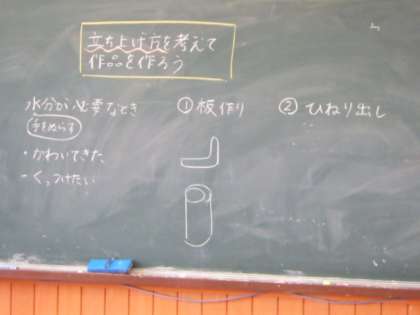 立ち上げ方を考えて
作品を作ろう
水分が必要なとき
手をぬらす
・かわいてきた
・くっつけたい
①板作り
②ひねり出し